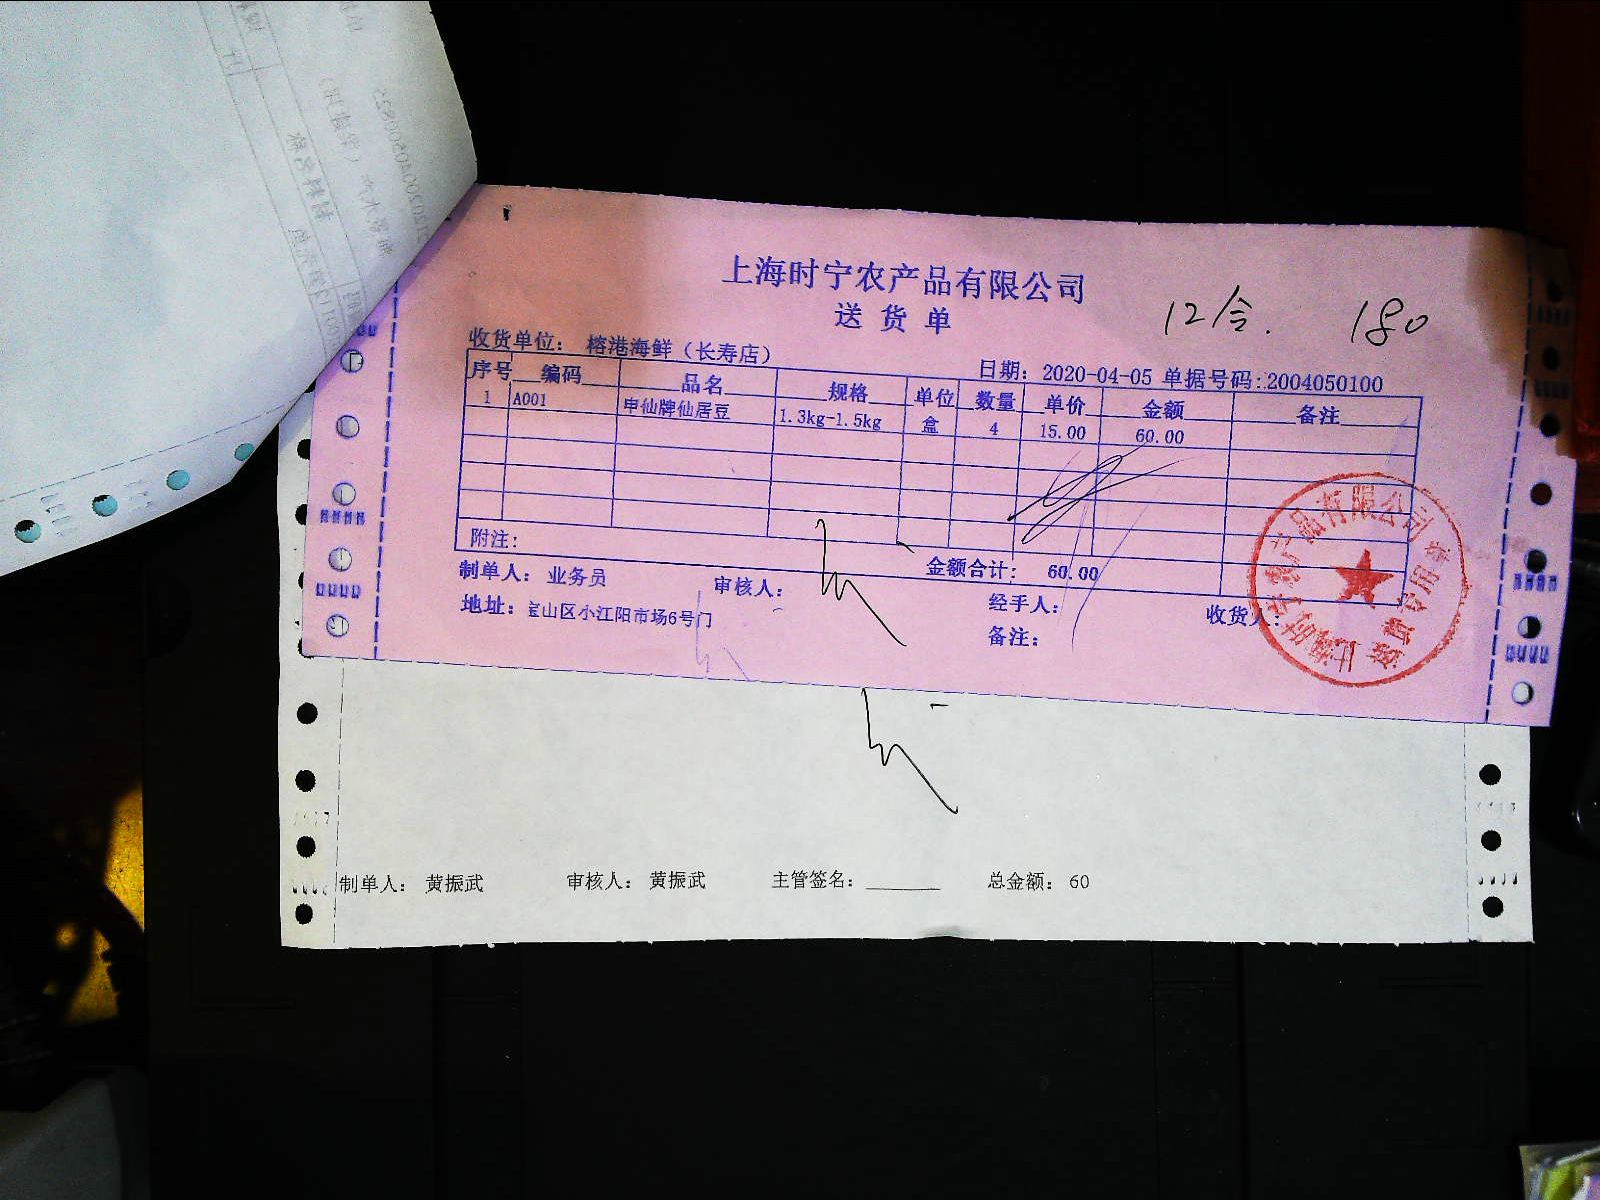 上海时宁农产品有限公司
送货单
12合. 180
收货单位： 榕港海鲜（长寿店） 日期：2020-04-05 单据号码：2004050100
序号 编码 品名 规格 单位 数量 单价 金额 备注
1 A001 申仙牌仙居豆 1.3kg-1.5kg 盒 4 15.00 60.00
附注： 金额合计： 60.00
制单人： 业务员 审核人： 经手人： 收货人：
地址：宝山区小江阳市场6号门 备注：
制单人： 黄振武 审核人： 黄振武 主管签名： 总金额： 60